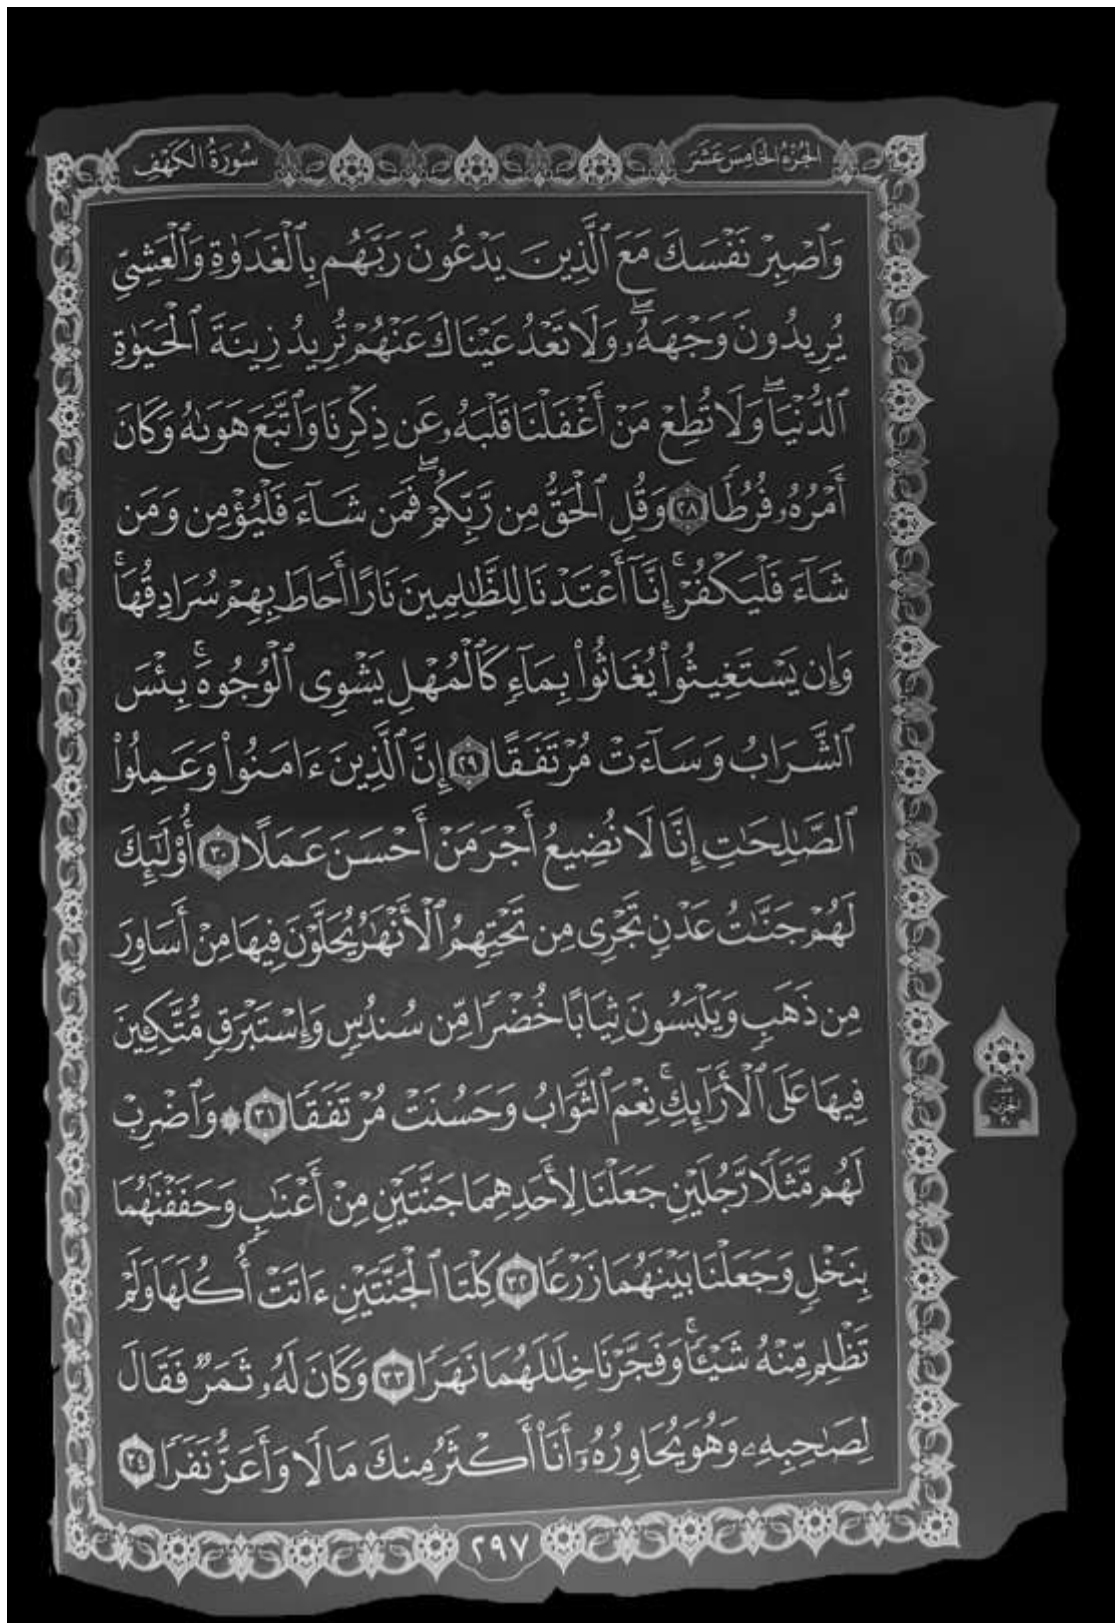 الجزء الخامس عشر
سورة الكهف
وَٱصْبِرْ نَفْسَكَ مَعَ ٱلَّذِينَ يَدْعُونَ رَبَّهُم بِٱلْغَدَوٰةِ وَٱلْعَشِىِّ
يُرِيدُونَ وَجْهَهُۥۖ وَلَا تَعْدُ عَيْنَاكَ عَنْهُمْ تُرِيدُ زِينَةَ ٱلْحَيَوٰةِ
ٱلدُّنْيَاۖ وَلَا تُطِعْ مَنْ أَغْفَلْنَا قَلْبَهُۥ عَن ذِكْرِنَا وَٱتَّبَعَ هَوَىٰهُ وَكَانَ
أَمْرُهُۥ فُرُطًا ٢٨ وَقُلِ ٱلْحَقُّ مِن رَّبِّكُمْۖ فَمَن شَآءَ فَلْيُؤْمِن وَمَن
شَآءَ فَلْيَكْفُرْۚ إِنَّآ أَعْتَدْنَا لِلظَّٰلِمِينَ نَارًا أَحَاطَ بِهِمْ سُرَادِقُهَاۚ
وَإِن يَسْتَغِيثُوا۟ يُغَاثُوا۟ بِمَآءٍ كَٱلْمُهْلِ يَشْوِى ٱلْوُجُوهَۚ بِئْسَ
ٱلشَّرَابُ وَسَآءَتْ مُرْتَفَقًا ٢٩ إِنَّ ٱلَّذِينَ ءَامَنُوا۟ وَعَمِلُوا۟
ٱلصَّٰلِحَٰتِ إِنَّا لَا نُضِيعُ أَجْرَ مَنْ أَحْسَنَ عَمَلًا ٣٠ أُو۟لَٰٓئِكَ
لَهُمْ جَنَّٰتُ عَدْنٍ تَجْرِى مِن تَحْتِهِمُ ٱلْأَنْهَٰرُ يُحَلَّوْنَ فِيهَا مِنْ أَسَاوِرَ
مِن ذَهَبٍ وَيَلْبَسُونَ ثِيَابًا خُضْرًا مِّن سُندُسٍ وَإِسْتَبْرَقٍ مُّتَّكِـِٔينَ
فِيهَا عَلَى ٱلْأَرَآئِكِۚ نِعْمَ ٱلثَّوَابُ وَحَسُنَتْ مُرْتَفَقًا ٣١ ۞ وَٱضْرِبْ
لَهُم مَّثَلًا رَّجُلَيْنِ جَعَلْنَا لِأَحَدِهِمَا جَنَّتَيْنِ مِنْ أَعْنَٰبٍ وَحَفَفْنَٰهُمَا
بِنَخْلٍ وَجَعَلْنَا بَيْنَهُمَا زَرْعًا ٣٢ كِلْتَا ٱلْجَنَّتَيْنِ ءَاتَتْ أُكُلَهَا وَلَمْ
تَظْلِم مِّنْهُ شَيْـًٔاۚ وَفَجَّرْنَا خِلَٰلَهُمَا نَهَرًا ٣٣ وَكَانَ لَهُۥ ثَمَرٌ فَقَالَ
لِصَٰحِبِهِۦ وَهُوَ يُحَاوِرُهُۥٓ أَنَا۠ أَكْثَرُ مِنكَ مَالًا وَأَعَزُّ نَفَرًا ٣٤
٢٩٧